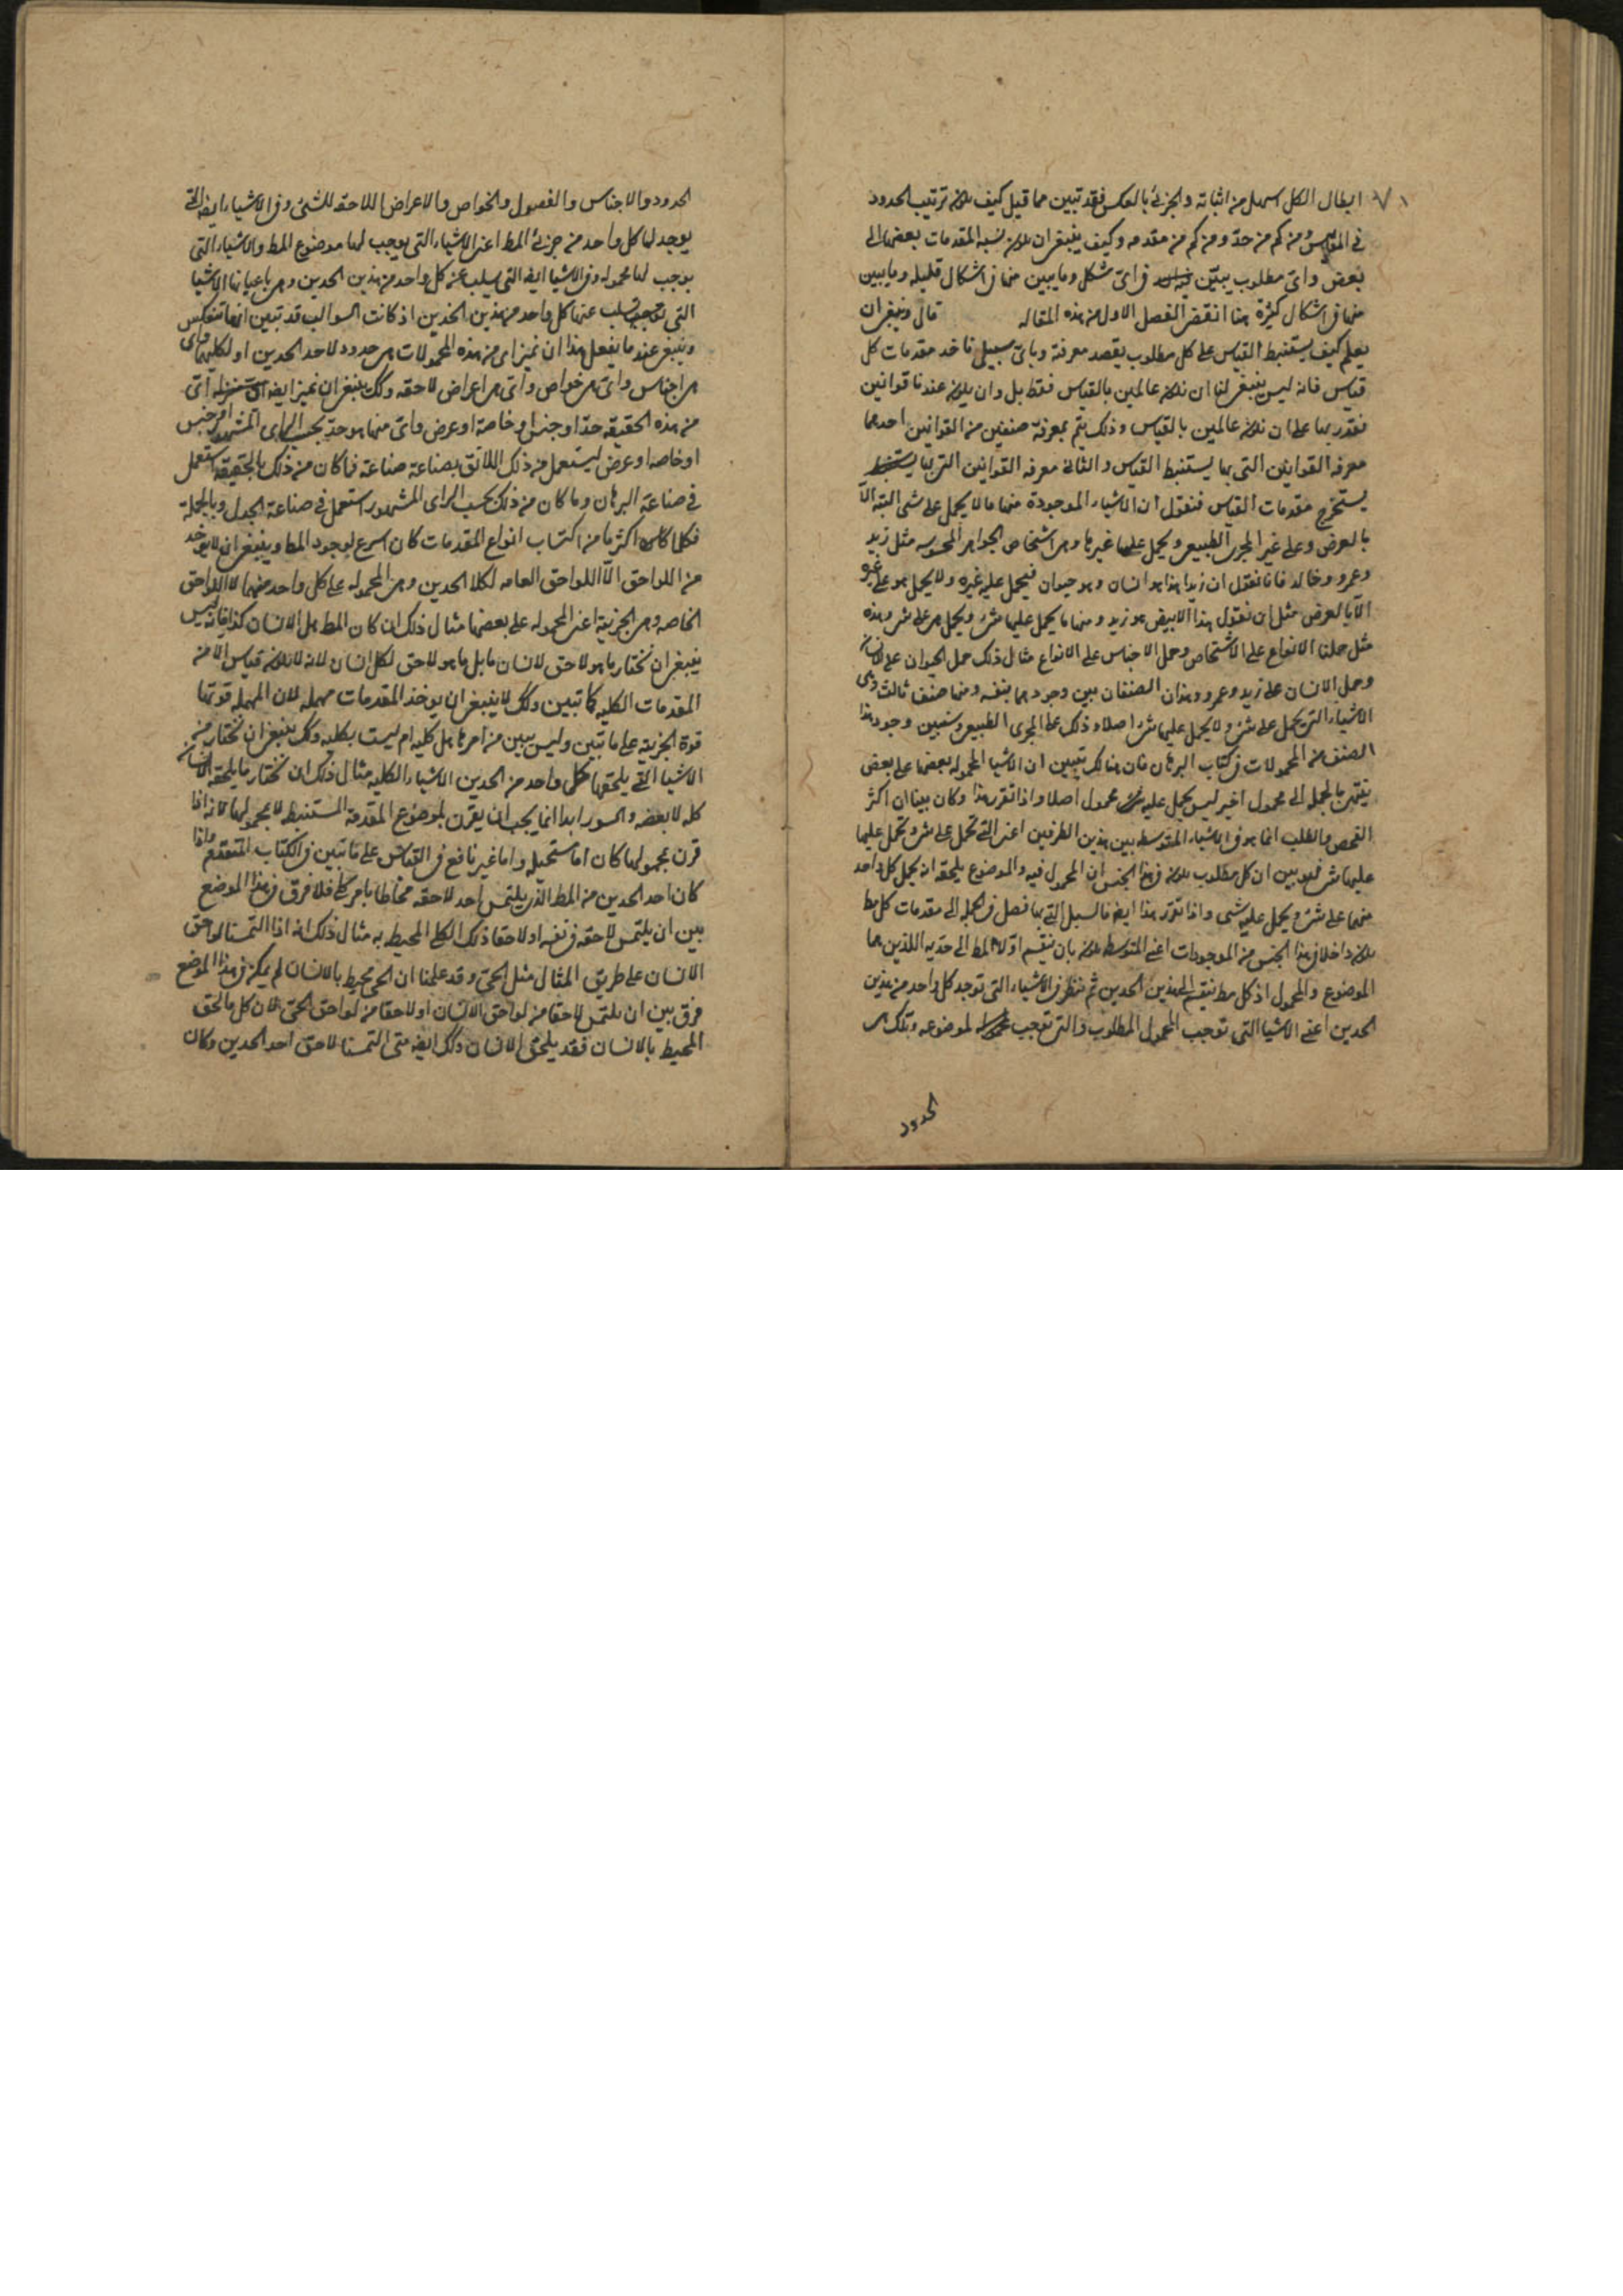 ابطال الكل اسهل من اثباته والجزئى بالعكس فقد تبين مما قيل كيف يكون ترتيب الحدود
فى المقاييس ومن كم من حد ومن كم من مقدمه وكيف ينبغى ان يكون نسبة المقدمات بعضها الى
بعض واى مطلوب يبين فى اى شكل وما يبين منها فى اشكال قليله وما يبين
منها فى اشكال كثيرة هنا انقضى الفصل الاول من هذه المقاله قال وينبغى ان
يعلم كيف يستنبط القياس على كل مطلوب يقصد معرفته وباى سبيل ناخذ مقدمات كل
قياس فانه ليس ينبغى لنا ان نكون عالمين بالقياس فقط بل وان يكون عندنا قوانين
نقدر بها على ان نكون عالمين بالقياس وذلك يتم بمعرفة صنفين من القوانين احدهما
معرفه القوانين التى بها يستنبط القياس والثانى معرفه القوانين التى بها
يستخرج مقدمات القياس فنقول ان الاشياء الموجودة منها ما لا يحمل على شى البته الا
بالعرض وعلى غير المجرى الطبيعى ويحمل عليها غيرها وهى اشخاص الجواهر المحسوسه مثل زيد
وعمرو وخالد فانا نقول ان زيدا هذا هو انسان وهو حيوان فيحمل عليه غيره ولا يحمل هو على غيره
الا بالعرض مثل ان نقول هذا الابيض هو زيد ومنها ما يحمل عليها شئ ويحمل هى على شئ وهذه
مثل حملنا الانواع على الاشخاص وحمل الاجناس على الانواع مثال ذلك حمل الحيوان على الانسان
وحمل الانسان على زيد وعمرو وهذان الصنفان بين وجودهما بنفسه ومنها صنف ثالث وهى
الاشياء التى تحمل على شئ ولا يحمل عليها شئ اصلا وذلك على المجرى الطبيعى وسنبين وجود هذا
الصنف من المحمولات فى كتاب البرهان فان هنالك تبيين ان الاشيا المحموله بعضها على بعض
ينتهى بالجمله الى محمول اخير ليس يحمل عليه محمول اصلا واذا تقرر هذا وكان بينا ان اكثر
الفحص والطلب انما هو فى الاشياء المتوسطه بين هذين الطرفين اعنى التى تحمل على شئ وتحمل عليها
عليها شئ فهو بين ان كل مطلوب يكون فى هذا الجنس ان المحمول فيه والموضوع يلحقه ان يحمل كل واحد
منهما على شئ ويحمل عليه شى واذا تقرر هذا ايضا فالسبيل التى بها نصل فى الجمله الى مقدمات كل مط
يكون داخلا فى هذا الجنس من الموجودات اعنى المتوسطه يكون بان نقسم اولا المط الى حديه اللذين هما
الموضوع والمحمول اذ كل مط نقسم الى هذين الحدين ثم ننظر فى الاشياء التى توجد كل واحد من هذين
الحدين اعنى الاشيا التى توجب المحمول المطلوب والتى توجب لموضوعه وتلك هى
الحدود
الحدود والاجناس والفصول والخواص والاعراض اللاحقه للشئ وفى الاشياء ايضا التى
يوجد لها كل واحد من جزئى المط اعنى الاشياء التى يوجب لها موضوع المط والاشياء التى
يوجب لها محموله وفى الاشيا ايضا التى يسلب عن كل واحد من هذين الحدين وهى باعيانها الاشيا
التى يسلب عنها كل واحد من هذين الحدين اذ كانت السوالب قد تبين انها تنعكس
وينبغى عندما يفعل هذا ان نميز اى من هذه المحمولات هى حدود لاحد الحدين او لكليهما واى
هى اجناس واى هى خواص واى هى اعراض لاحقه وكك ينبغى ان نميز ايضا اى
من هذه الحقيقه حد او جنس او خاصة او عرض واى منها هو حد بحسب الراى المشهور او جنس
او خاصه او عرض ليستعمل من ذلك اللائق بصناعة صناعة فما كان من ذلك بالحقيقه استعمل
فى صناعة البرهان وما كان من ذلك بحسب الراى المشهور استعمل فى صناعة الجدل وبالجملة
فكلما اكثرنا من اكتساب انواع المقدمات كان اسرع لوجود المط وينبغى ان لا يوخذ
من اللواحق الا اللواحق العامه لكلا الحدين وهى المحموله على كل واحد منهما لا اللواحق
الخاصه وهى الجزئية اعنى المحموله على بعضها مثال ذلك ان كان المط هل الانسان كذا فانه ليس
ينبغى ان نختار ما هو لاحق لانسان ما بل ما هو لاحق لكل انسان لانه لا يكون قياس الا من
المقدمات الكليه كما تبين وكك لا ينبغى ان يوخذ المقدمات مهمله لان المهمله قوتها
قوة الجزئية على ما تبين وليس يبين من امرها هل كليه ام ليست بكليه وكك ينبغى ان نختار من
الاشيا التى يلحقها كل واحد من الحدين الاشياء الكليه مثال ذلك ان نختار ما يلحقه الانسان
كله لا بعضه والسور ابدا انما يجب ان يقرن بموضوع المقدمة المستنبطه لا بمحمولها لانه اذا
قرن بمحمولها كان اما مستحيله واما غير نافع فى القياس على ما تبين فى الكتاب المتقدم واذا
كان احد الحدين من المط الذى يلتمس احد لاحقه محاطا بامر كلى فلا فرق فى هذا الموضع
بين ان يلتمس لاحقه فى نفسه او لاحقا ذلك الكلى المحيط به مثال ذلك انه اذا التمسنا لواحق
الانسان على طريق المثال مثل الحى وقد علمنا ان الحى محيط بالانسان لم يكن فى هذا الموضع
فرق بين ان يلتمس لاحقا من لواحق الانسان او لاحقا من لواحق الحى لان كل ما لحق
المحيط بالانسان فقد يلحق الانسان وكك ايضا متى التمسنا لاحق احد الحدين وكان